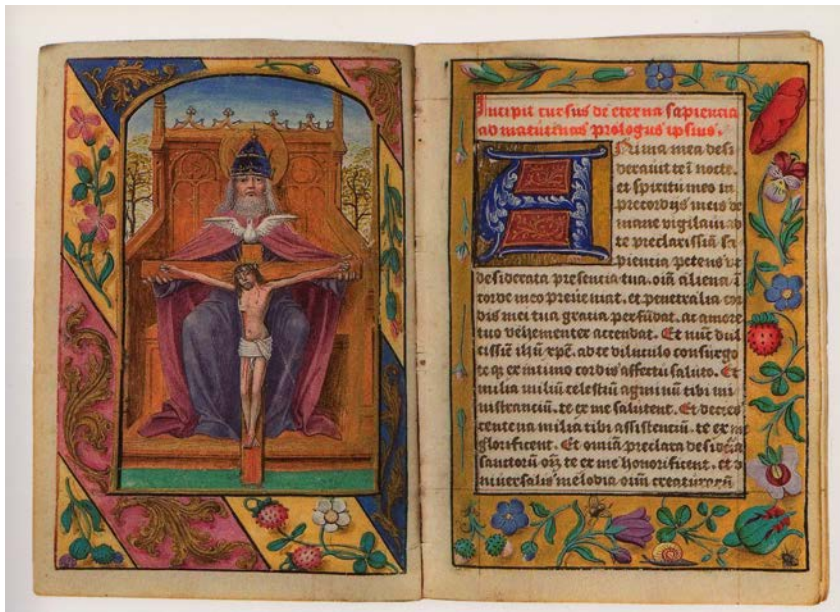 Incipit cursus de eterna sapiencia
ad matutinas prologus ipsius.
Anima mea desi
derauit te ī nocte.
et spiritu meo in
precordijs meis de
mane vigilaui ad
te preclarissīa sa
piencia petens vt
desiderata presencia tua. oīa aliena ī
corde meo preueniat. et penetralia cor
dis mei tua gracia perfūdat. ac amore
tuo vehementer accendat. Et nūc dul
cissīe ihū xp̄e. ad te diluculo consurgo
te qȝ ex intimo cordis affectu saluto. Et
milia miliū celestiū agminū tibi mi
nistranciū. te ex me salutent. Et decies
centena milia tibi assistenciū. te ex me
glorificent. Et omīa preclara desideria
sanctorū te ex me honorificent. et v
niuersalis melodia oīm creaturarū